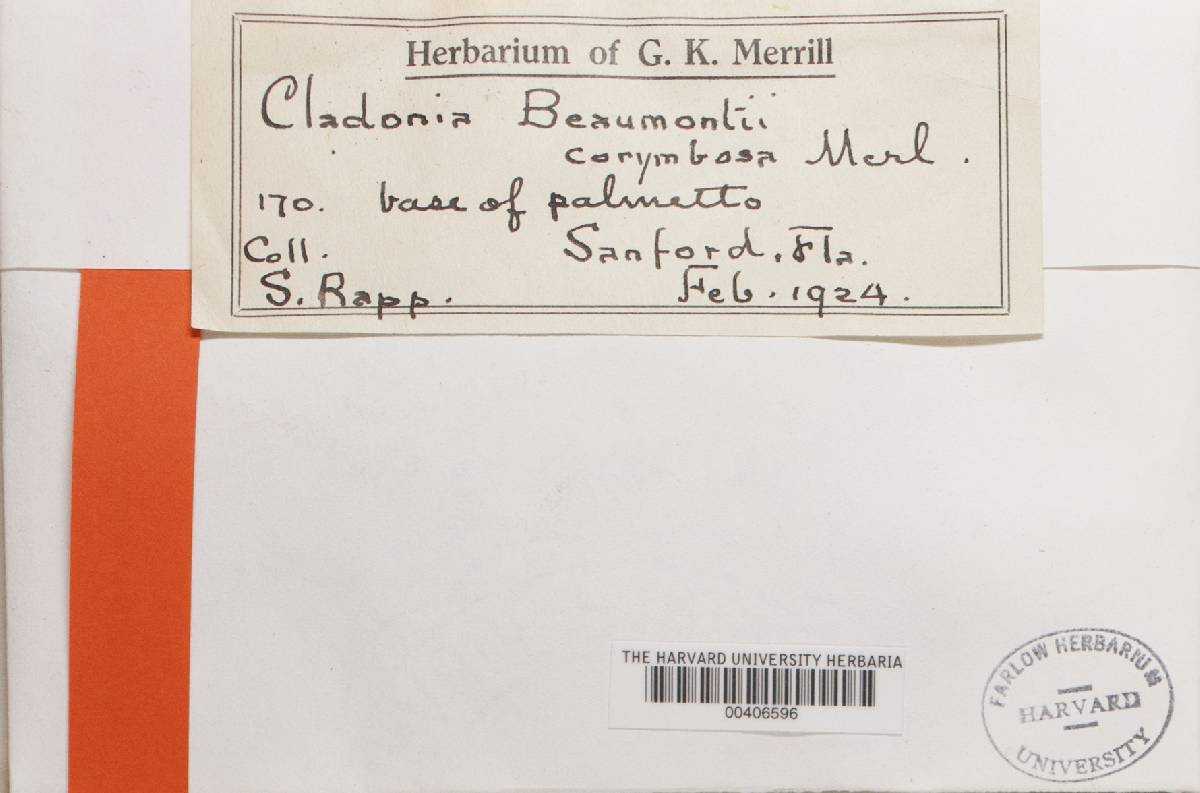 Herbarium of G. K. Merrill
Cladonia Beaumontii
corymbosa Merl.
170. base of palmetto
Coll. Sanford, Fla.
S. Rapp. Feb. 1924.
THE HARVARD UNIVERSITY HERBARIA
00406596
FARLOW HERBARIUM
HARVARD
UNIVERSITY